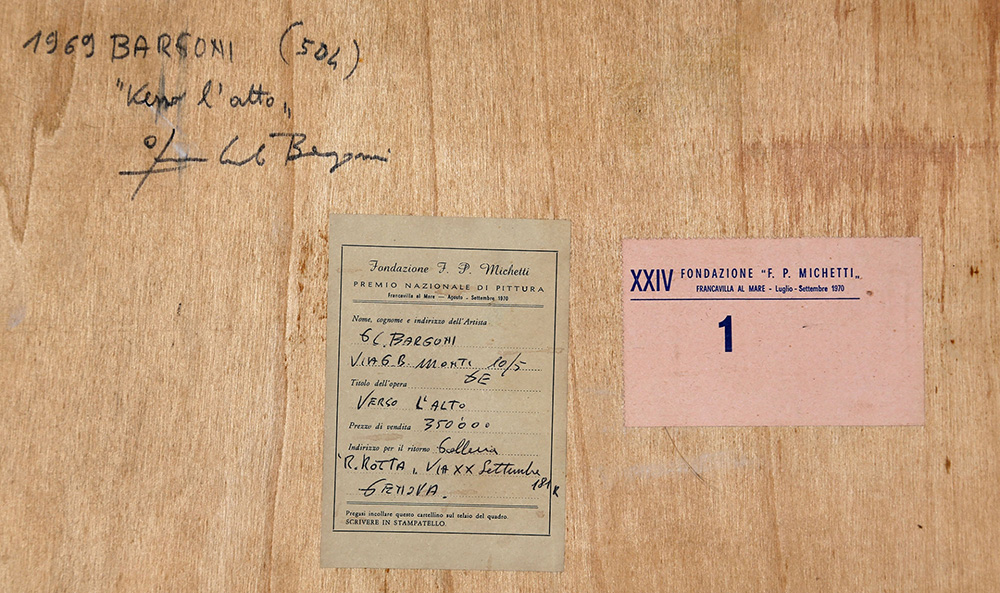 1969 BARGONI (504)
"Verso l'alto"
Bargoni
Fondazione F. P. Michetti
PREMIO NAZIONALE DI PITTURA
Francavilla al Mare — Agosto - Settembre 1970
Nome, cognome e indirizzo dell'Artista
GC. BARGONI
VIA G.B. MONTI 10/5
GE
Titolo dell'opera
VERSO L'ALTO
Prezzo di vendita 350'000
Indirizzo per il ritorno Galleria
"R. ROTTA", VIA XX Settembre
181 R
GENOVA.
Pregasi incollare questo cartellino sul telaio del quadro.
SCRIVERE IN STAMPATELLO.
XXIV FONDAZIONE "F. P. MICHETTI„
FRANCAVILLA AL MARE - Luglio - Settembre 1970
1